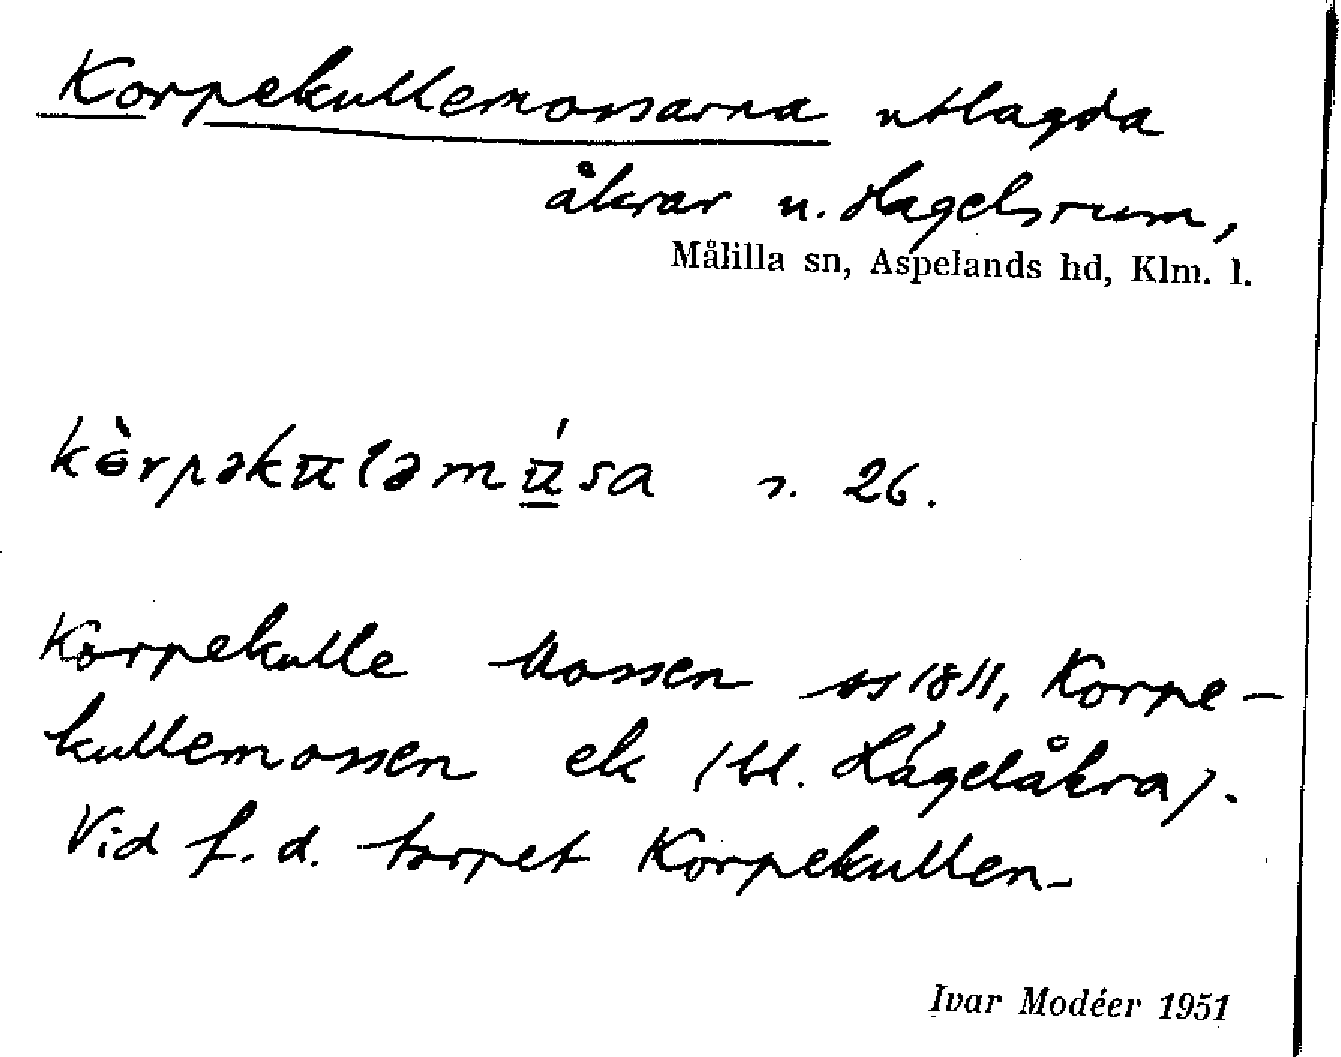 Korpekullemossarna utlagda
åkrar u. Hagelsrum,
Målilla sn, Aspelands hd, Klm. l.
s. 26.
Korpekulle Mossen ss 1811, Korpe-
kullemossen ek (bl. Hagelåkra).
Vid f. d. torpet Korpekullen.
Ivar Modéer 1951